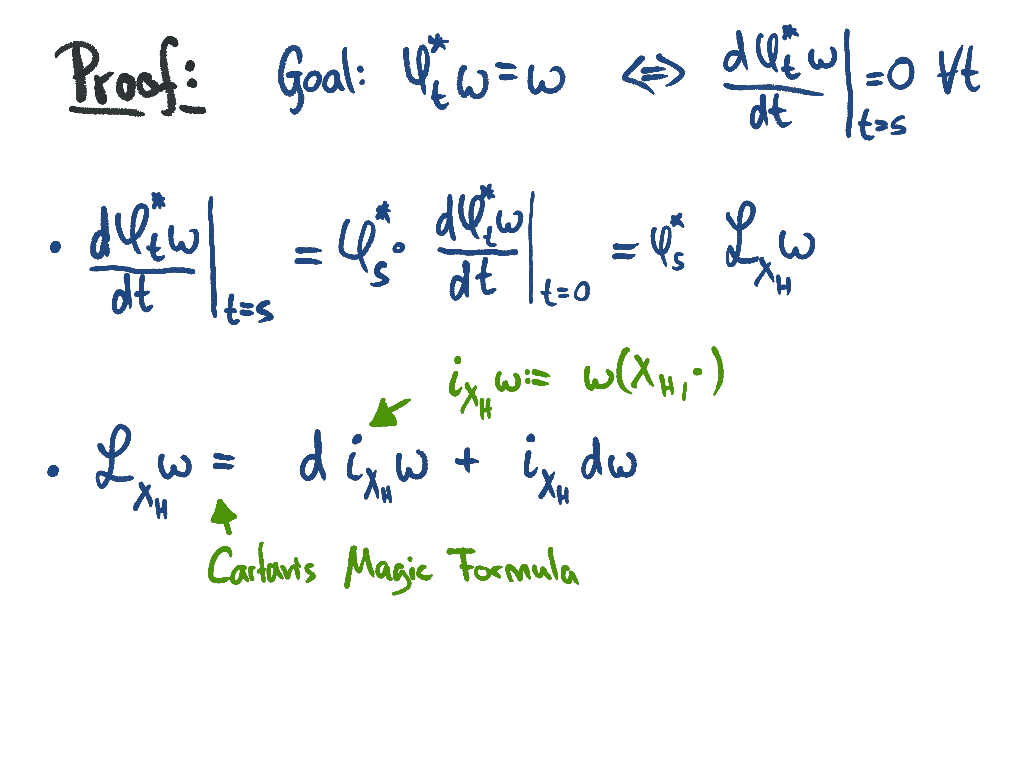 Proof: Goal: φ_t^* ω = ω <=> dφ_t^* ω / dt |_{t=s} = 0 ∀t
• dφ_t^* ω / dt |_{t=s} = φ_s^* • dφ_t^* ω / dt |_{t=0} = φ_s^* ℒ_{X_H} ω
i_{X_H} ω := ω(X_H, •)
• ℒ_{X_H} ω = d i_{X_H} ω + i_{X_H} dω
Cartan's Magic Formula